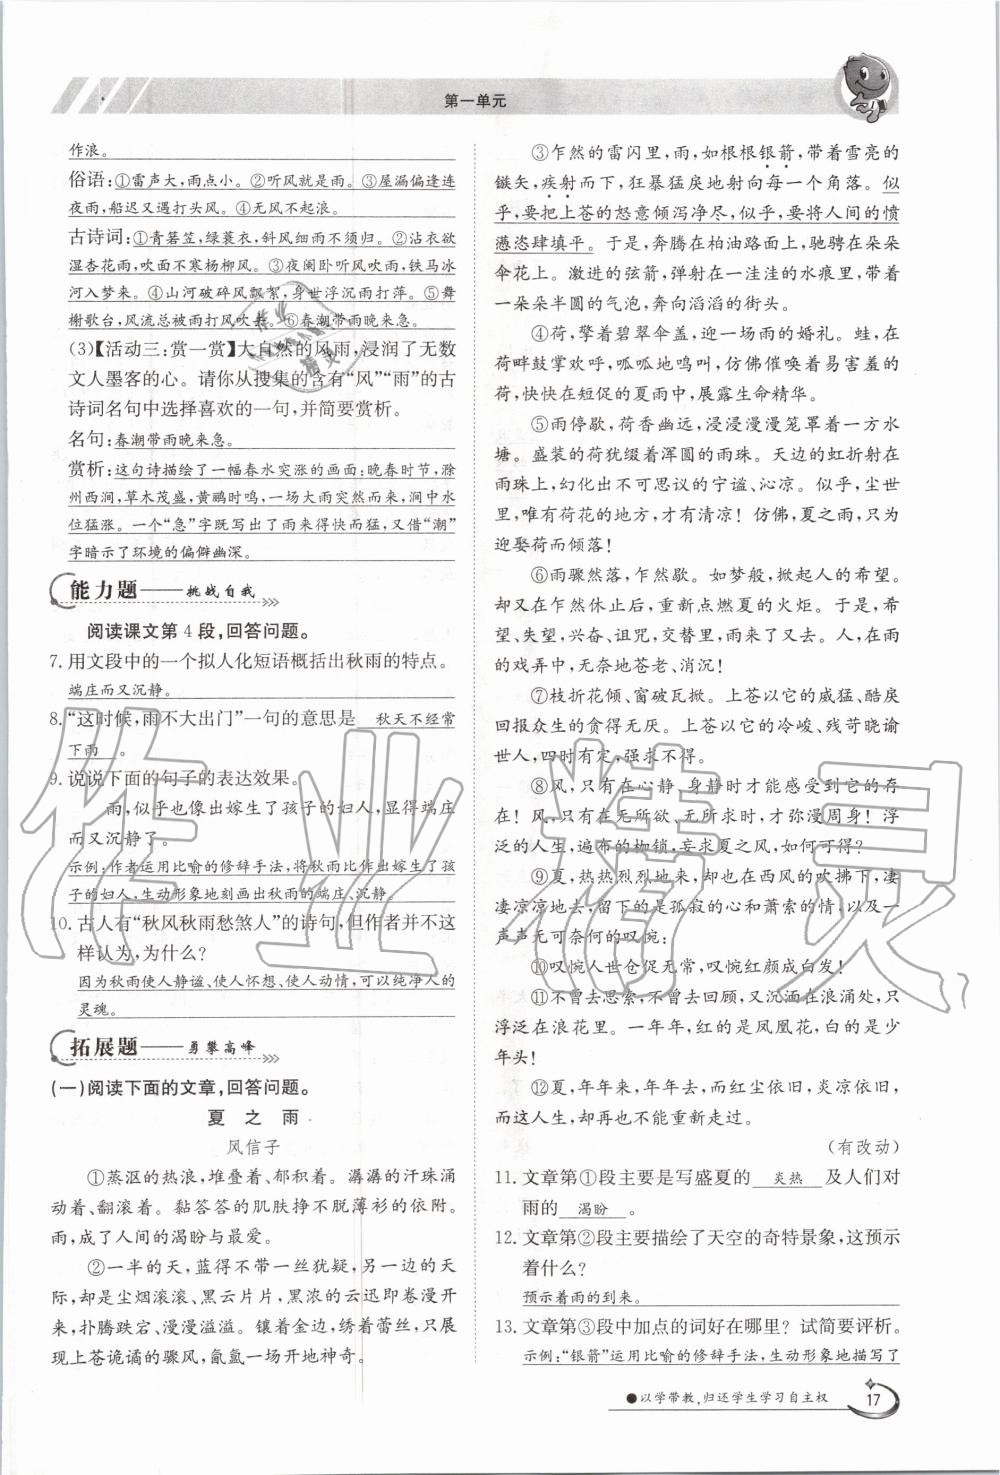 第一单元
作浪。
俗语:①雷声大,雨点小。②听风就是雨。③屋漏偏逢连
夜雨,船迟又遇打头风。④无风不起浪。
古诗词:①青箬笠,绿蓑衣,斜风细雨不须归。②沾衣欲
湿杏花雨,吹面不寒杨柳风。③夜阑卧听风吹雨,铁马冰
河入梦来。④山河破碎风飘絮,身世浮沉雨打萍。⑤舞
榭歌台,风流总被雨打风吹去。⑥春潮带雨晚来急。
(3)【活动三:赏一赏】大自然的风雨,浸润了无数
文人墨客的心。请你从搜集的含有“风”“雨”的古
诗词名句中选择喜欢的一句,并简要赏析。
名句:春潮带雨晚来急。
赏析:这句诗描绘了一幅春水突涨的画面:晚春时节,滁
州西涧,草木茂盛,黄鹂时鸣,一场大雨突然而来,涧中水
位猛涨。一个“急”字既写出了雨来得快而猛,又借“潮”
字暗示了环境的偏僻幽深。
能力题——挑战自我
阅读课文第4段,回答问题。
7. 用文段中的一个拟人化短语概括出秋雨的特点。
端庄而又沉静。
8. “这时候,雨不大出门”一句的意思是 秋天不经常
下雨 。
9. 说说下面的句子的表达效果。
雨,似乎也像出嫁生了孩子的妇人,显得端庄
而又沉静了。
示例:作者运用比喻的修辞手法,将秋雨比作出嫁生了孩
子的妇人,生动形象地刻画出秋雨的端庄、沉静。
10. 古人有“秋风秋雨愁煞人”的诗句,但作者并不这
样认为,为什么?
因为秋雨使人静谧、使人怀想、使人动情,可以纯净人的
灵魂。
拓展题——勇攀高峰
(一)阅读下面的文章,回答问题。
夏之雨
风信子
①蒸沤的热浪,堆叠着、郁积着。潺潺的汗珠涌
动着、翻滚着。黏答答的肌肤挣不脱薄衫的依附。
雨,成了人间的渴盼与最爱。
②一半的天,蓝得不带一丝犹疑。另一半的天
际,却是尘烟滚滚、黑云片片,黑浓的云迅即卷漫开
来,扑腾跌宕、漫漫溢溢。镶着金边,绣着蕾丝,只展
现上苍诡谲的骤风,氤氲一场开地神奇。
③乍然的雷闪里,雨,如根根银箭,带着雪亮的
镞矢,疾射而下,狂暴猛戾地射向每一个角落。似
乎,要把上苍的怒意倾泻净尽,似乎,要将人间的愤
懑恣肆填平。于是,奔腾在柏油路面上,驰骋在朵朵
伞花上。激进的弦箭,弹射在一洼洼的水痕里,带着
一朵朵半圆的气泡,奔向滔滔的街头。
④荷,擎着碧翠伞盖,赶一场雨的婚礼。蛙,在
荷畔鼓掌欢呼,呱呱地鸣叫,仿佛催唤着易害羞的
荷,快快在短促的夏雨中,展露生命精华。
⑤雨停歇,荷香幽远,浸浸漫漫笼罩着一方水
塘。盛装的荷犹缀着浑圆的雨珠。天边的虹折射在
雨珠上,幻化出不可思议的宁谧、沁凉。似乎,尘世
里,唯有荷花的地方,才有清凉!仿佛,夏之雨,只为
迎娶荷而倾落!
⑥雨骤然落,乍然歇。如梦般,掀起人的希望。
却又在乍然休止后,重新点燃夏的火炬。于是,希
望、失望,兴奋、诅咒,交替里,雨来了又去。人,在雨
的戏弄中,无奈地苍老、消沉!
⑦枝折花倾、窗破瓦掀。上苍以它的威猛、酷戾
回报众生的贪得无厌。上苍以它的冷峻、残苛晓谕
世人,四时有定,强求不得。
⑧风,只有在心静、身静时才能感受到它的存
在!风,只有在无所欲、无所求时,才弥漫周身!浮
泛的人生,遍布的枷锁,妄求夏之风,如何可得?
⑨夏,热热烈烈地来,却也在西风的吹拂下,凄
凄凉凉地去,留下的是孤寂的心和萧索的情,以及一
声声无可奈何的叹惋:
⑩叹惋人世仓促无常,叹惋红颜成白发!
⑪不曾去思索,不曾去回顾,又沉湎在浪涌处,只
浮泛在浪花里。一年年,红的是凤凰花,白的是少
年头!
⑫夏,年年来,年年去,而红尘依旧,炎凉依旧,
而这人生,却再也不能重新走过。
(有改动)
11. 文章第①段主要是写盛夏的 炎热 及人们对
雨的 渴盼 。
12. 文章第②段主要描绘了天空的奇特景象,这预示
着什么?
预示着雨的到来。
13. 文章第③段中加点的词好在哪里?试简要评析。
示例:“银箭”运用比喻的修辞手法,生动形象地描写了
●以学带教,归还学生学习自主权
17
作业精灵